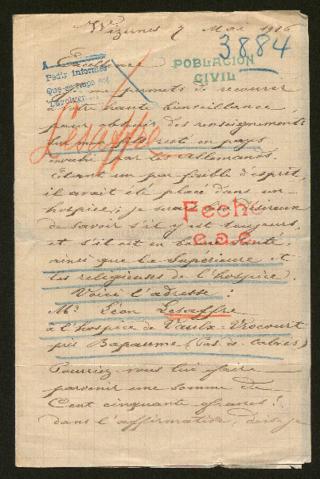 Wizernes 7 Mai 1916
3884
Excellence
A
Pedir informes
Que se ruego
Devolver
POBLACION
CIVIL
Lesaffre
permets de recourir
à votre haute bienveillance
pour obtenir des renseignements
sur mon resté en pays
envahi par les Allemands.
Etant un peu faible d'esprit
il avait été placé dans un
hospice; je suis désireux
de savoir s'il y est toujours,
et s'il est en bonne santé,
ainsi que la Supérieure et
les religieuses de l'hospice.
Fecho
e.a.e.
Voici l'adresse :
Mr Léon Lesaffre
à l'hospice de Vaulx-Vrocourt
près Bapaume (Pas-de-Calais)
Pourriez-vous lui faire
parvenir une somme de
Cent cinquante francs?
dans l'affirmative, dois-je